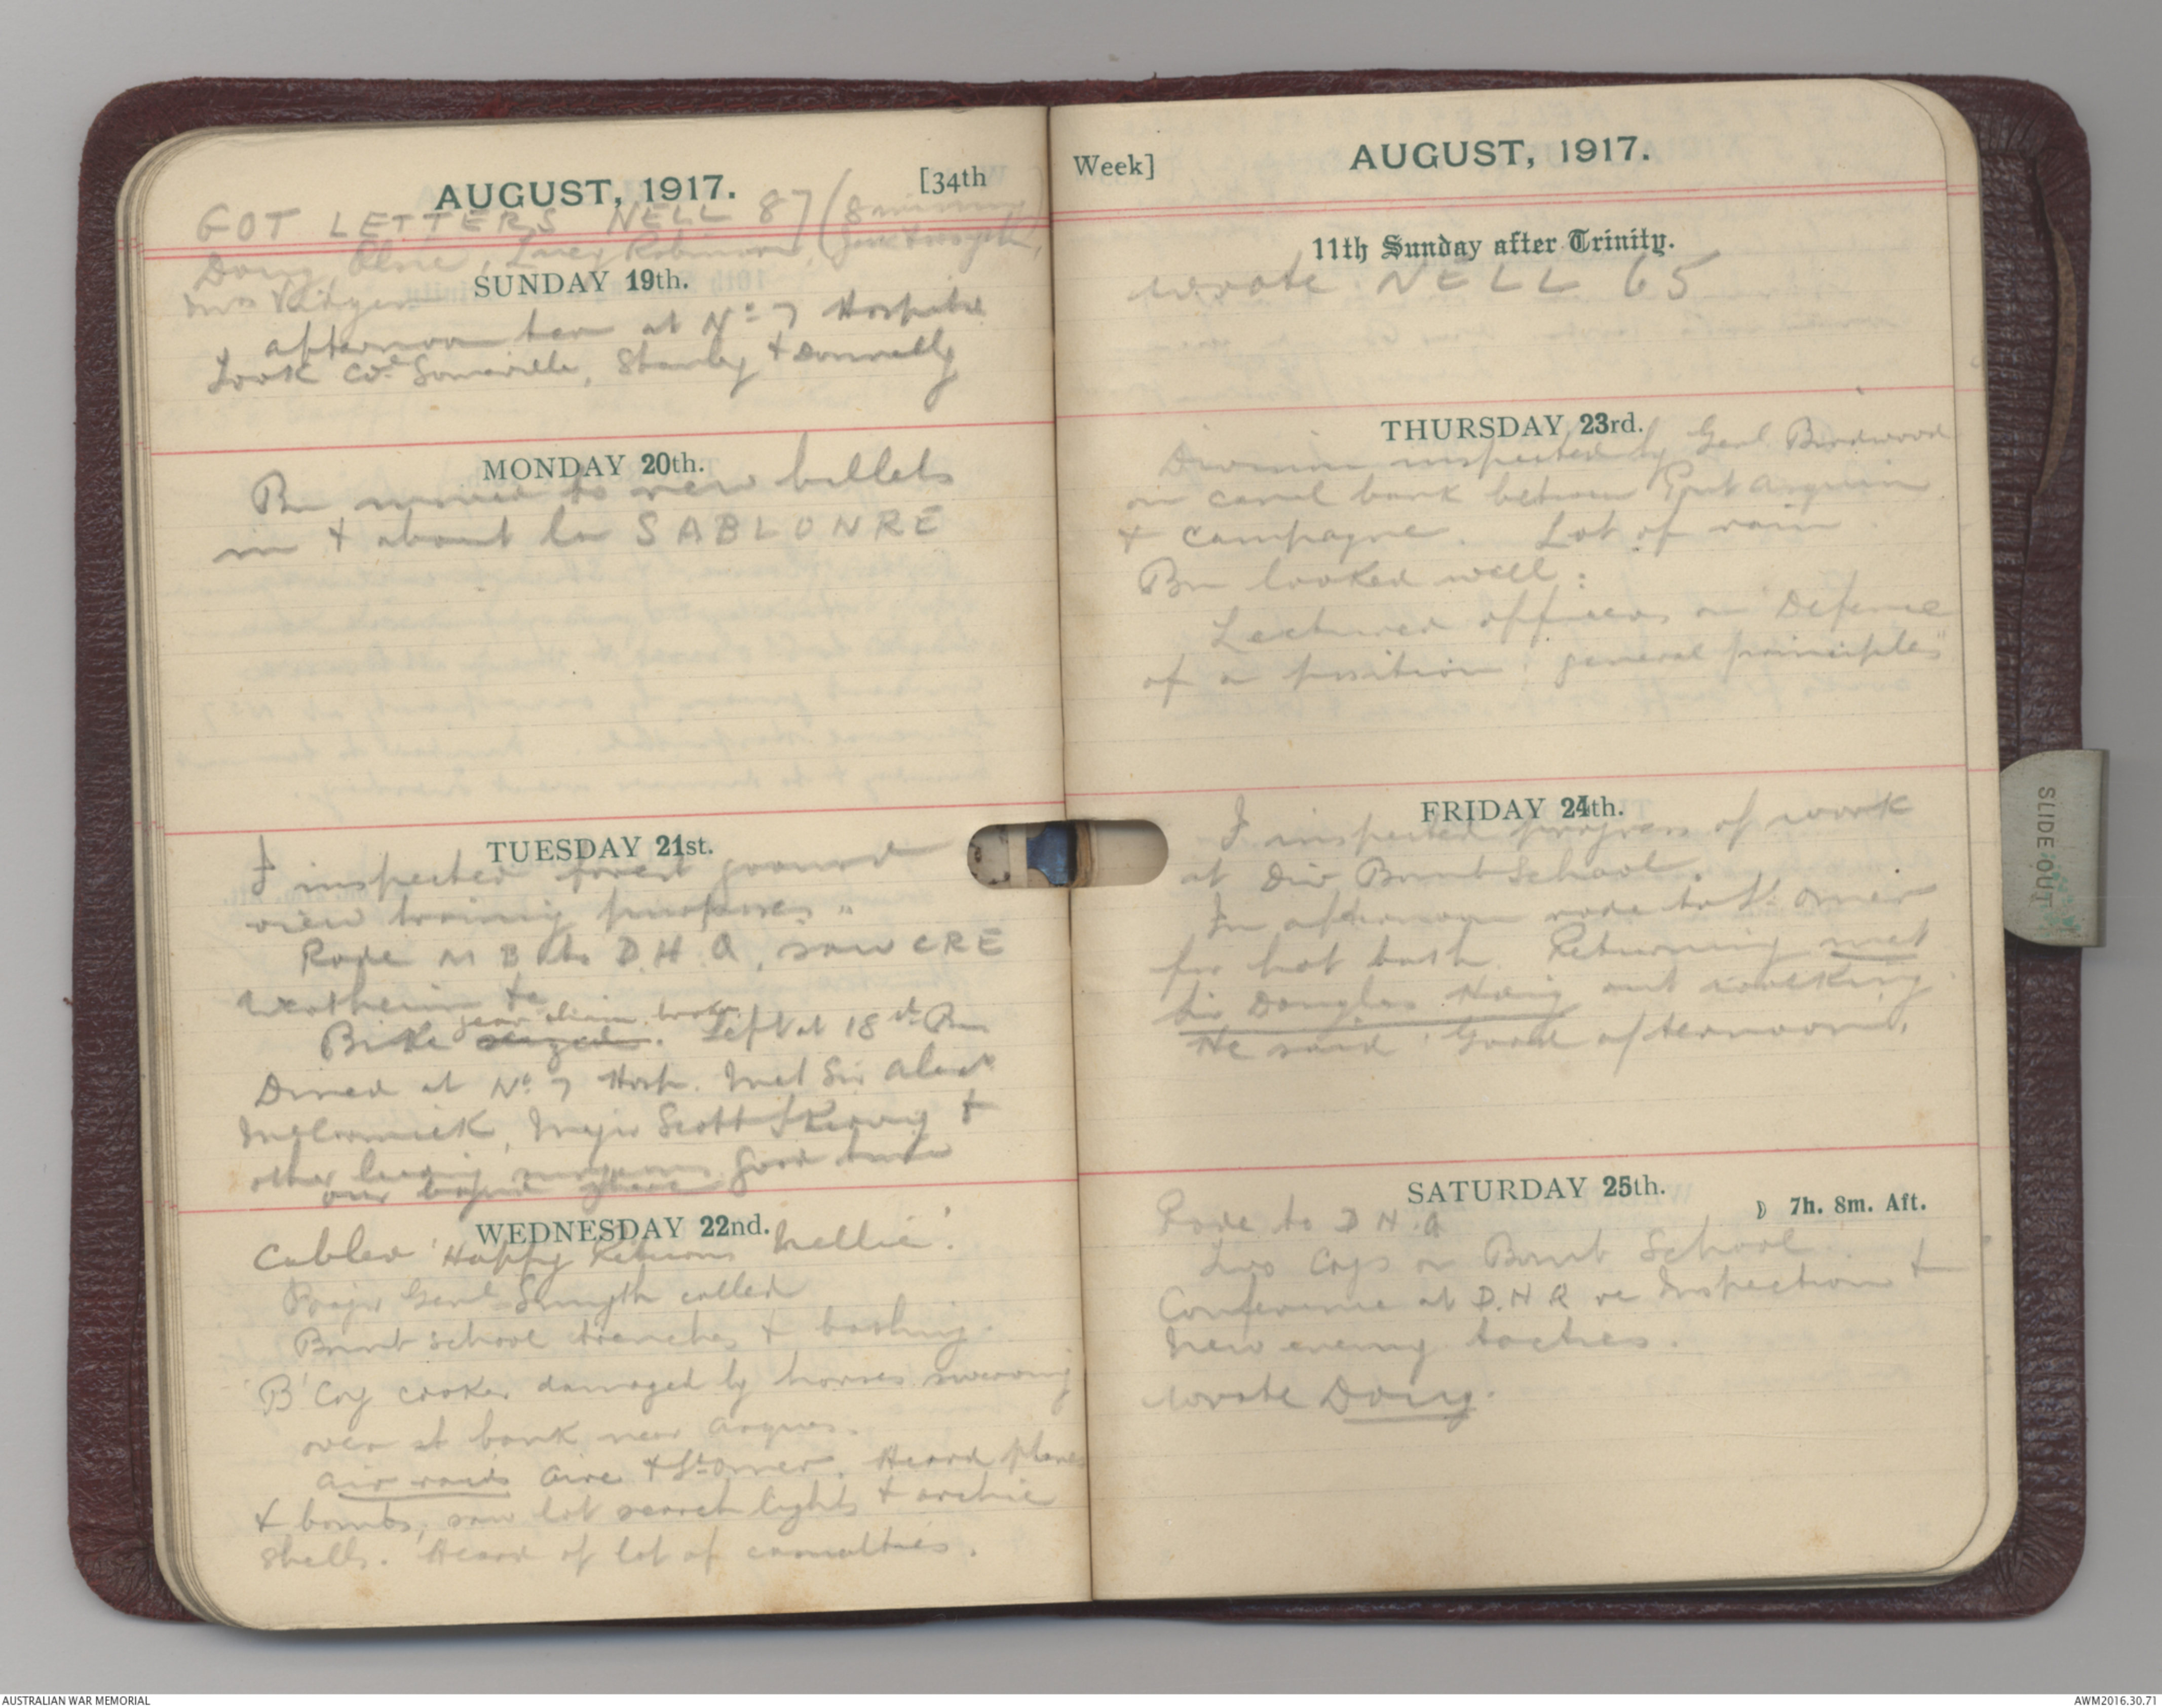 AUGUST, 1917. [34th
GOT LETTERS NELL 87 (8 missing)
Doug, Elsie, Lucy Robinson,
Mrs
SUNDAY 19th.
afternoon tea at No 7 Hospital
Took Col Somerville, Stanley & Donnelly
MONDAY 20th.
Bn moved to new billets
in & about la SABLONRE
TUESDAY 21st.
I inspected forest ground
view training purposes "
Rode M B to D.H.Q, saw CRE
&c
gear chain broke
Bike seized. Left at 18th Bn
Dined at No 7 Hosp. Met Sir Alex
McCormick, Major Scott Skirving &
other leading surgeons good time
WEDNESDAY 22nd.
Cabled 'Happy Returns Nellie'.
Major Genl Smyth called
Bomb school trenches & bathing.
B Coy cooker damaged by horses swerving
over at bank near Arques.
Air raids Aire & St Omer. Heard planes
& bombs, saw lot searchlights & archie
shells. Heard of lot of casualties.
Week] AUGUST, 1917.
11th Sunday after Trinity.
wrote NELL 65
THURSDAY 23rd.
Division inspected by Genl Birdwood
on canal bank between Pont Asquin
& Campagne. Lot of rain
Bn looked well:
Lectured officers on Defence
of a position: general principles"
FRIDAY 24th.
I inspected progress of work
at Div Bomb School.
In afternoon rode to St Omer
for hot bath. Returning met
Sir Douglas Haig out walking
He said 'Good afternoon'.
SATURDAY 25th.
☽ 7h. 8m. Aft.
Rode to D H.Q
Two Coys on Bomb School.
Conference at D.H.Q re Inspection &
New enemy tactics.
Wrote Doug.
SLIDE OUT
AUSTRALIAN WAR MEMORIAL
AWM2016.30.71